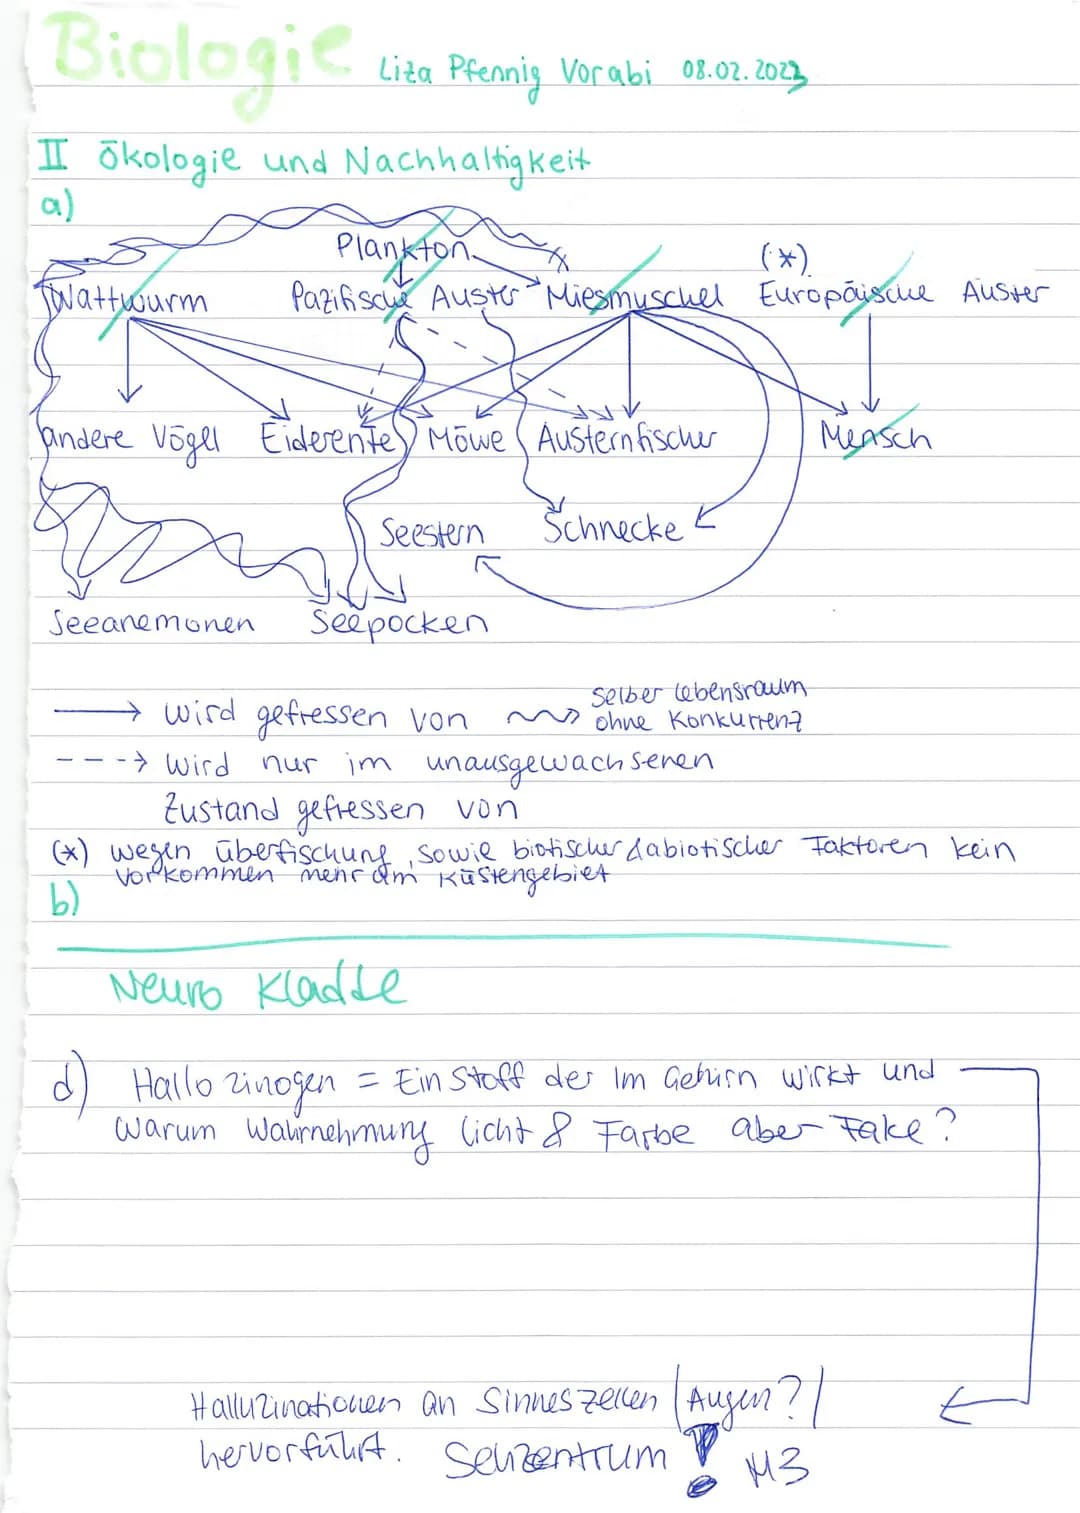 Biologie Liza Pfennig Vorabi 08.02.2023
II Ökologie und Nachhaltigkeit
a)
Plankton (*)
Wattwurm Pazifische Auster Miesmuschel Europäische Auster
andere Vögel Eiderente Möwe Austernfischer Mensch
Seestern Schnecke
Seeanemonen Seepocken
→ wird gefressen von ~~> Selber Lebensraum
ohne Konkurrenz
---> wird nur im unausgewachsenen
Zustand gefressen von
(*) wegen überfischung, sowie biotischer & abiotischer Faktoren kein
vorkommen mehr am Küstengebiet
b)
Neuro Kladde
d) Hallozinogen = Ein Stoff der im Gehirn wirkt und
Warum Wahrnehmung licht & Farbe aber Fake?
Halluzinationen an Sinneszellen (Augen?)
hervorführt. Sehzentrum ! M3